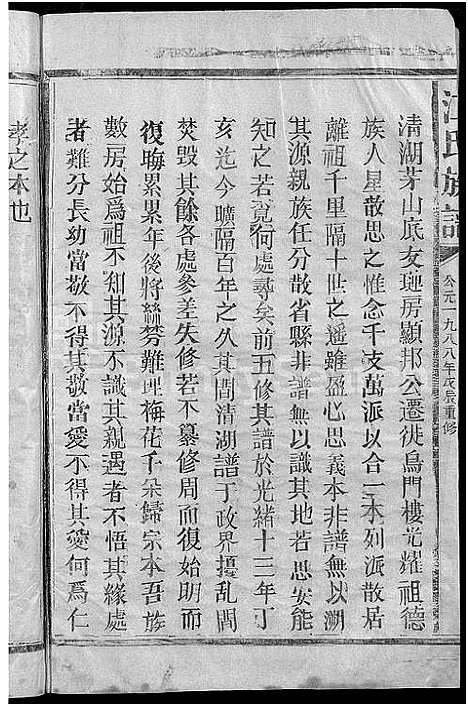 江氏族譜
公元一九八八年戊辰重修
清湖茅山底友璭房顯邦公遷徙烏門樓光耀祖德
族人星散思之惟念千支萬派以合一本列派散居
離祖千里隔十世之遥雖盈心思義本非譜無以溯
其源親族任分散省縣非譜無以識其地若思安能
知之若覔何處尋矣前五修其譜於光緒十三年丁
亥迄今曠隔百年之久其間清湖譜于政界擾乱間
焚毀其餘各處參差失修若不纂修周而復始明而
復晦累累年後將絲棼難理梅花千朵歸宗本吾族
數房始爲祖不知其源不識其親遇者不悟其緣處
者難分長幼當敬不得其敬當愛不得其愛何爲仁
孝之本也